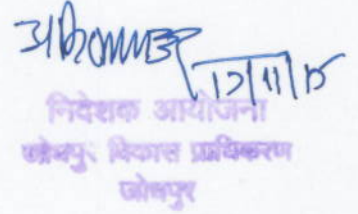 17/11/15
निदेशक आयोजना
जोधपुर विकास प्राधिकरण
जोधपुर